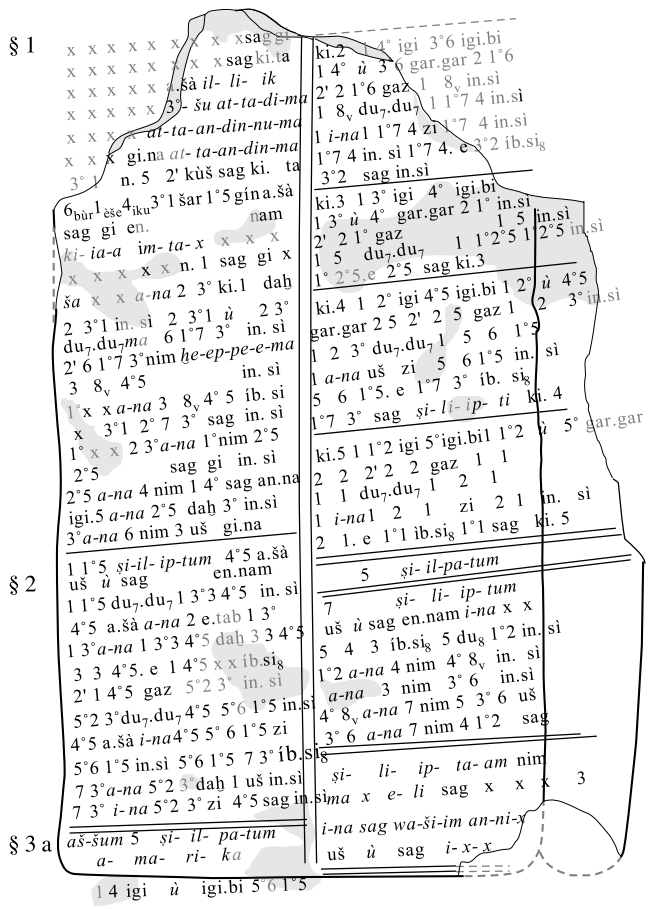 § 1
x x x x x x x x xsag gi
x x x x x x x x sag ki.ta
x x x x x x a.šà il- li- ik
x x x x x 3°- šu at-ta-di-ma
x x x x at-ta-an-din-nu-ma
x x x gi.na at- ta-an-din-ma
3° 1 n. 5 2' kùš sag ki. ta
6bùr1èše4iku3°1šar 1°5 gín a.šà
sag gi en. nam
ki- ia-a im- ta- x x x x
x x x x x n. 1 sag gi x
ša x x a-na 2 3° ki.1 daḫ
2 3°1 in. sì 2 3°1 ù 2 3°
du7.du7ma 6 1°7 3° in. sì
2' 6 1°7 3°nim ḫe-ep-pe-e-ma
3 8v 4°5 in. sì
1°x x a-na 3 8v 4°5 íb. si
x 3°1 2°7 3° sag in. sì
1° x x 2 3°a-na 1°nim 2°5
2°5 sag gi in. sì
2°5 a-na 4 nim 1 4° sag an.na
igi.5 a-na 2°5 daḫ 3° in.sì
3°a-na 6 nim 3 uš gi.na
§ 2
1 1°5 ṣi-il- ip-tum 4°5 a.šà
uš ù sag en.nam
1 1°5 du7.du7 1 3°3 4°5 in. sì
4°5 a.šà a-na 2 e.tab 1 3°
1 3°a-na 1 3°3 4°5 daḫ 3 3 4°5
3 3 4°5. e 1 4°5 x x íb.si8
2' 1 4°5 gaz 5°2 3° in. sì
5°2 3°du7.du7 4°5 5°6 1°5 in.sì
4°5 a.šà i-na4°5 5°6 1°5 zi
5°6 1°5 in.sì 5°6 1°5 7 3°íb.si8
7 3°a-na 5°2 3°daḫ 1 uš in.sì
7 3° i- na 5°2 3° zi 4°5 sag in.sì
§ 3 a
aš-šum 5 ṣi- il- pa-tum
a- ma- ri- ka
1 4 igi ù igi.bi 5°6 1°5
ki.2 1 4° igi 3°6 igi.bi
1 4° ù 3 6 gar.gar 2 1°6
2' 2 1°6 gaz 1 8v in.sì
1 8v du7.du7 1 1°7 4 in.sì
1 i-na1 1°7 4 zi 1°7 4 in.sì
1°7 4 in. sì 1°7 4. e 3°2 íb.si8
3°2 sag in.sì
ki.3 1 3° igi 4° igi.bi
1 3° ù 4° gar.gar 2 1° in.sì
2' 2 1° gaz 1 5 in.sì
1 5 du7.du7 1 1°2°5 1°2°5 in.sì
1° 2°5.e 2°5 sag ki.3
ki.4 1 2° igi 4°5 igi.bi 1 2° ù 4°5
gar.gar 2 5 2' 2 5 gaz 1 2 3° in.sì
1 2 3° du7.du7 1 5 6 1°5
1 a-na uš zi 5 6 1°5 in. sì
5 6 1°5. e 1°7 3° íb. si8
1°7 3° sag ṣi- li- ip- ti ki. 4
ki.5 1 1°2 igi 5°igi.bi1 1°2 ù 5° gar.gar
2 2 2' 2 2 gaz 1 1
1 1 du7.du7 1 2 1
1 i-na1 2 1 zi 2 1 in. sì
2 1. e 1°1 ìb.si8 1°1 sag ki. 5
5 ṣi-il-pa-tum
7 ṣi- li- ip- tum
uš ù sag en.nam i-na x x
5 4 3 íb.si8 5 du8 1°2 in. sì
1°2 a-na 4 nim 4° 8v in. sì
a-na 3 nim 3° 6 in.sì
4° 8v a-na 7 nim 5 3° 6 uš
3° 6 a-na 7 nim 4 1°2 sag
ṣi- li- ip- ta- am nim
ma x e- li sag x x x 3
i-na sag wa-ši-im an-ni-x
uš ù sag i- x- x